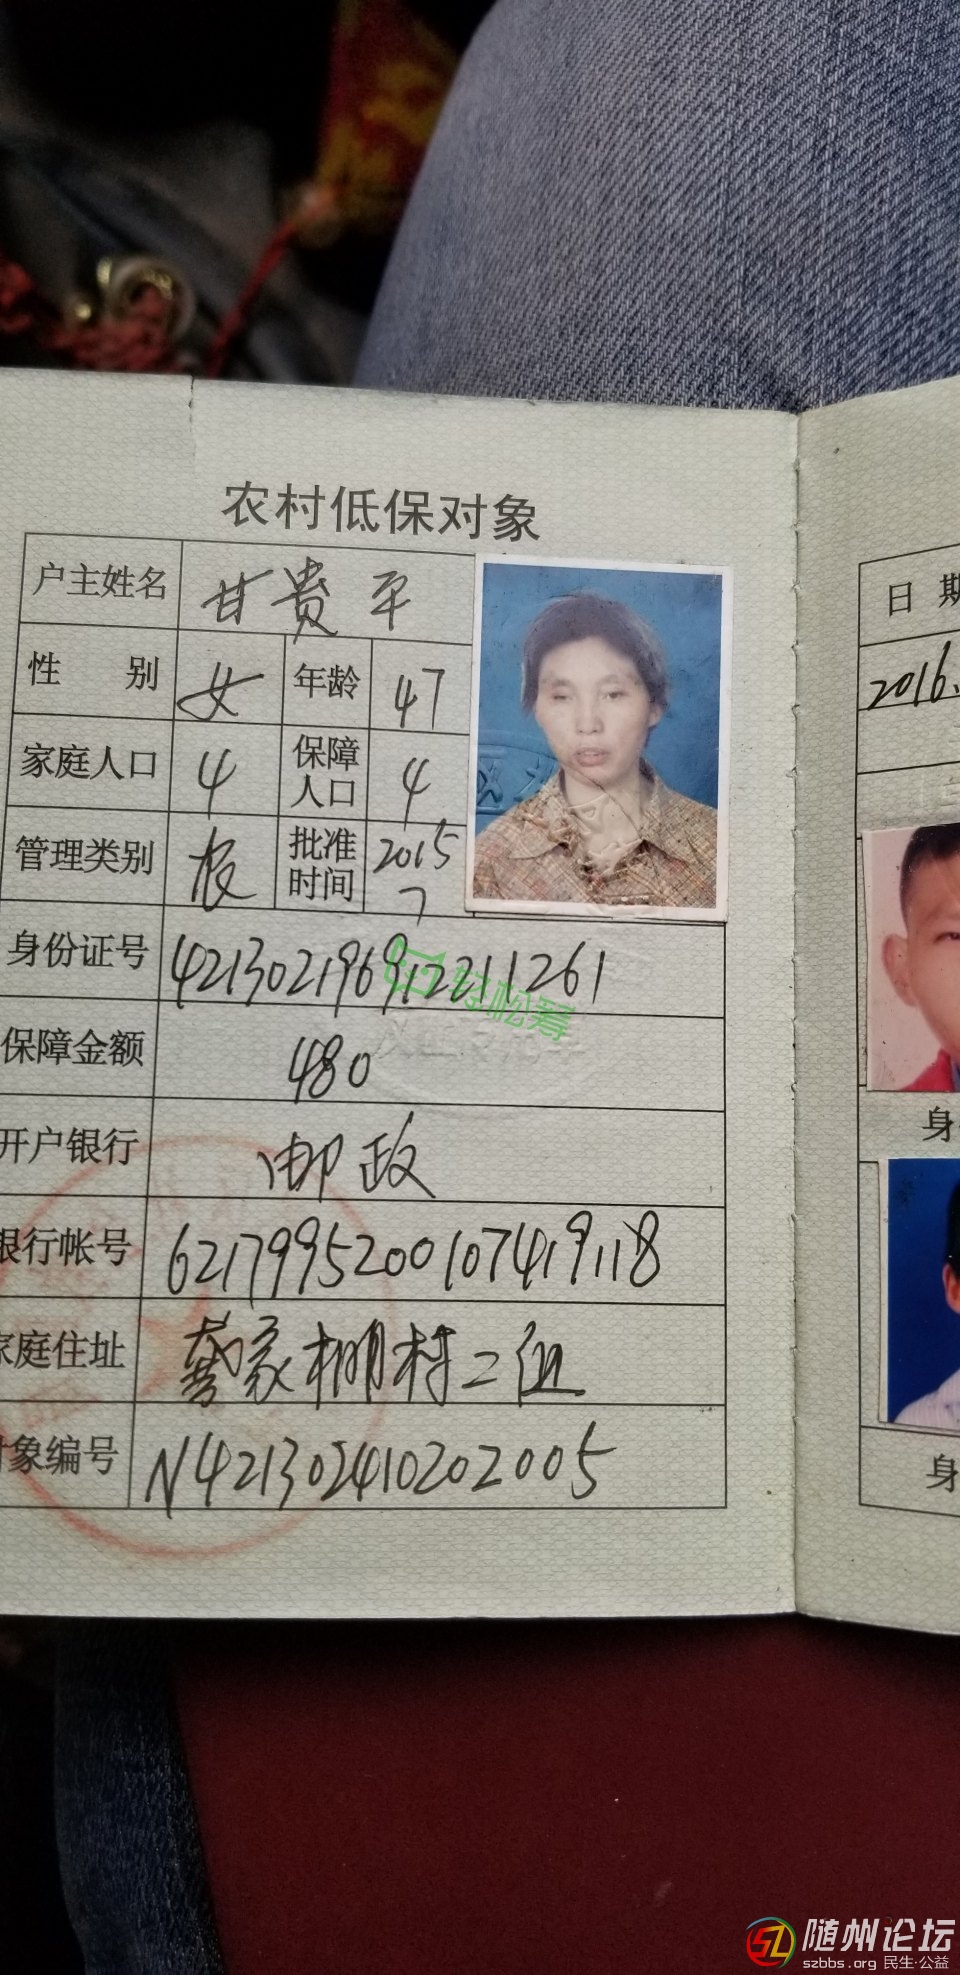 农村低保对象
户主姓名 甘贵平
性 别 女 年龄 47
家庭人口 4 保障人口 4
管理类别 批准时间 2015 7
身份证号 421302196912211261
轻松筹
保障金额 480
开户银行 邮政
银行帐号 6217995200107419118
家庭住址 龚家棚村二组
对象编号 N421302410202005
日期
2016.
身
身
随州论坛
szbbs.org 民生·公益